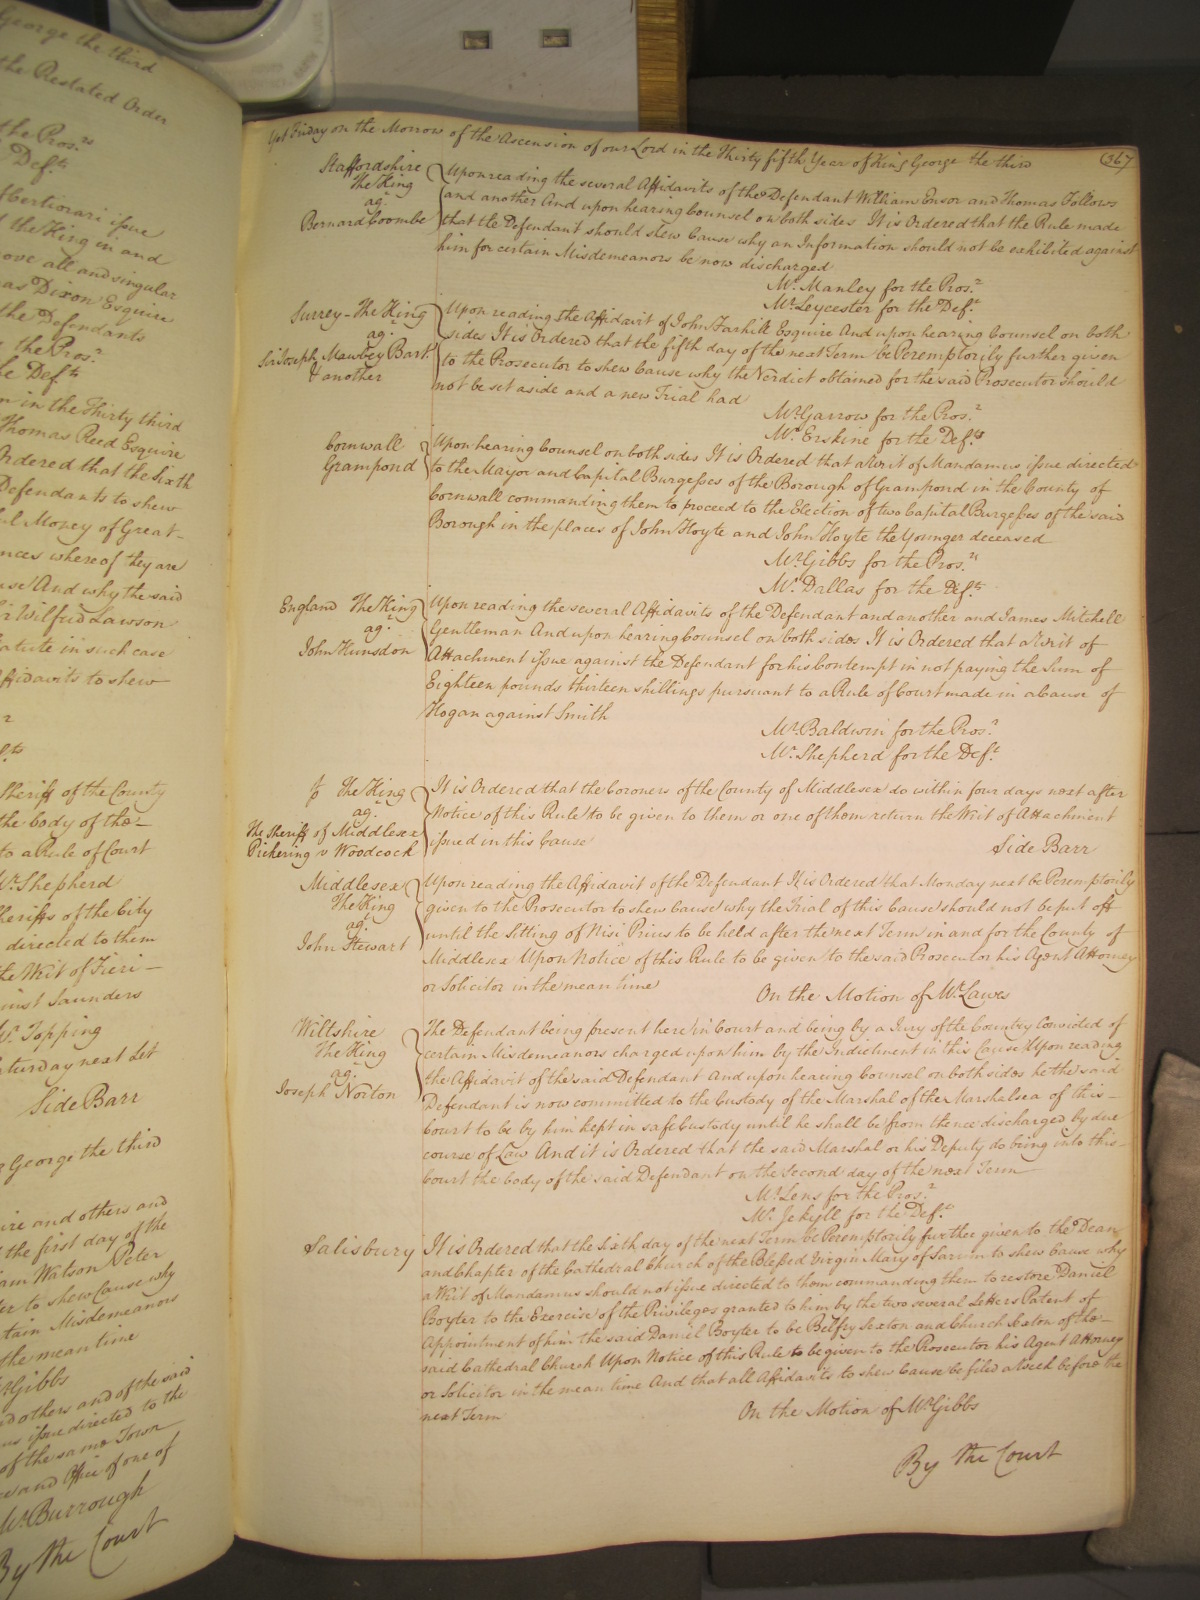 George the third
the Restated Order
the Pros.rs
Def.ts
Certiorari issue
the King in and
ove all and singular
as Dixon Esquire
the Defendants
the Pros.r
he Def.ts
in the Thirty third
Thomas Reed Esquire
Ordered that the Sixth
Defendants to shew
ful Money of Great
nces whereof they are
use And why the said
ir Wilfrid Lawson
tatute in such case
Affidavits to shew
Sheriff of the County
the body of the
to a Rule of Court
Mr. Shepherd
Sheriffs of the City
directed to them
the Writ of Fieri
inst Saunders
Mr. Topping
aturday next Let
Side Barr
George the third
ire and others and
the first day of the
iam Watson Peter
ter to shew Cause why
rtain Misdemeanors
the mean time
Mr. Gibbs
nd others and of the said
us issue directed to the
of the same Town
e and Office of one of
Mr. Burrough
By the Court
Yet Friday on the Morrow of the Ascension of our Lord in the Thirty fifth Year of King George the third
(367
Staffordshire
The King
ag.t
Bernard Coombe
Upon reading the several Affidavits of the Defendant William Ensor and Thomas Follows
and another And upon hearing Counsel on both sides It is Ordered that the Rule made
that the Defendant should shew Cause why an Information should not be exhibited against
him for certain Misdemeanors be now discharged
Mr. Manley for the Pros.r
Mr. Leycester for the Def.t
Surrey - The King
ag.t
Sir Joseph Mawbey Bart.
& another
Upon reading the Affidavit of John Farhill Esquire And upon hearing Counsel on both
sides It is Ordered that the fifth day of the next Term be Peremptorily further given
to the Prosecutor to shew Cause why the Verdict obtained for the said Prosecutor should
not be set aside and a new Trial had
Mr. Garrow for the Pros.r
Mr. Erskine for the Def.ts
Cornwall
Grampond
Upon hearing Counsel on both sides It is Ordered that a Writ of Mandamus issue directed
to the Mayor and Capital Burgesses of the Borough of Grampond in the County of
Cornwall commanding them to proceed to the Election of two Capital Burgesses of the said
Borough in the places of John Hoyte and John Hoyte the Younger deceased
Mr. Gibbs for the Pros.rs
Mr. Dallas for the Def.ts
England The King
ag.t
John Hunsdon
Upon reading the several Affidavits of the Defendant and another and James Mitchell
Gentleman And upon hearing Counsel on both sides It is Ordered that a Writ of
Attachment issue against the Defendant for his Contempt in not paying the Sum of
Eighteen pounds thirteen shillings pursuant to a Rule of Court made in a Cause of
Hogan against Smith
Mr. Baldwin for the Pros.r
Mr. Shepherd for the Def.t
The King
ag.t
The Sheriff of Middlesex
Pickering v Woodcock
It is Ordered that the Coroners of the County of Middlesex do within four days next after
Notice of this Rule to be given to them or one of them return the Writ of Attachment
issued in this Cause
Side Barr
Middlesex
The King
ag.t
John Stewart
Upon reading the Affidavit of the Defendant It is Ordered that Monday next be Peremptorily
given to the Prosecutor to shew Cause why the Trial of this Cause should not be put off
until the Sitting of Nisi Prius to be held after the next Term in and for the County of
Middlesex Upon Notice of this Rule to be given to the said Prosecutor his Agent Attorney
or Solicitor in the mean time
On the Motion of Mr. Lawes
Wiltshire
The King
ag.t
Joseph Norton
The Defendant being present here in Court and being by a Jury of the Country Convicted of
certain Misdemeanors charged upon him by the Indictment in this Cause Upon reading
the Affidavit of the said Defendant And upon hearing Counsel on both sides he the said
Defendant is now committed to the Custody of the Marshal of the Marshalsea of this
Court to be by him kept in safe Custody until he shall be from thence discharged by due
course of Law And it is Ordered that the said Marshal or his Deputy do bring into this
Court the body of the said Defendant on the Second day of the next Term
Mr. Lens for the Pros.r
Mr. Jekyll for the Def.t
Salisbury
It is Ordered that the Sixth day of the next Term be Peremptorily further given to the Dean
and Chapter of the Cathedral Church of the Blessed Virgin Mary of Sarum to shew Cause why
a Writ of Mandamus should not issue directed to them commanding them to restore Daniel
Boyter to the Exercise of the Privileges granted to him by the two several Letters Patent of
Appointment of him the said Daniel Boyter to be Belfry Sexton and Church Sexton of the
said Cathedral Church Upon Notice of this Rule to be given to the Prosecutor his Agent Attorney
or Solicitor in the mean time And that all Affidavits to shew Cause be filed a Week before the
next Term
On the Motion of Mr. Gibbs
By the Court